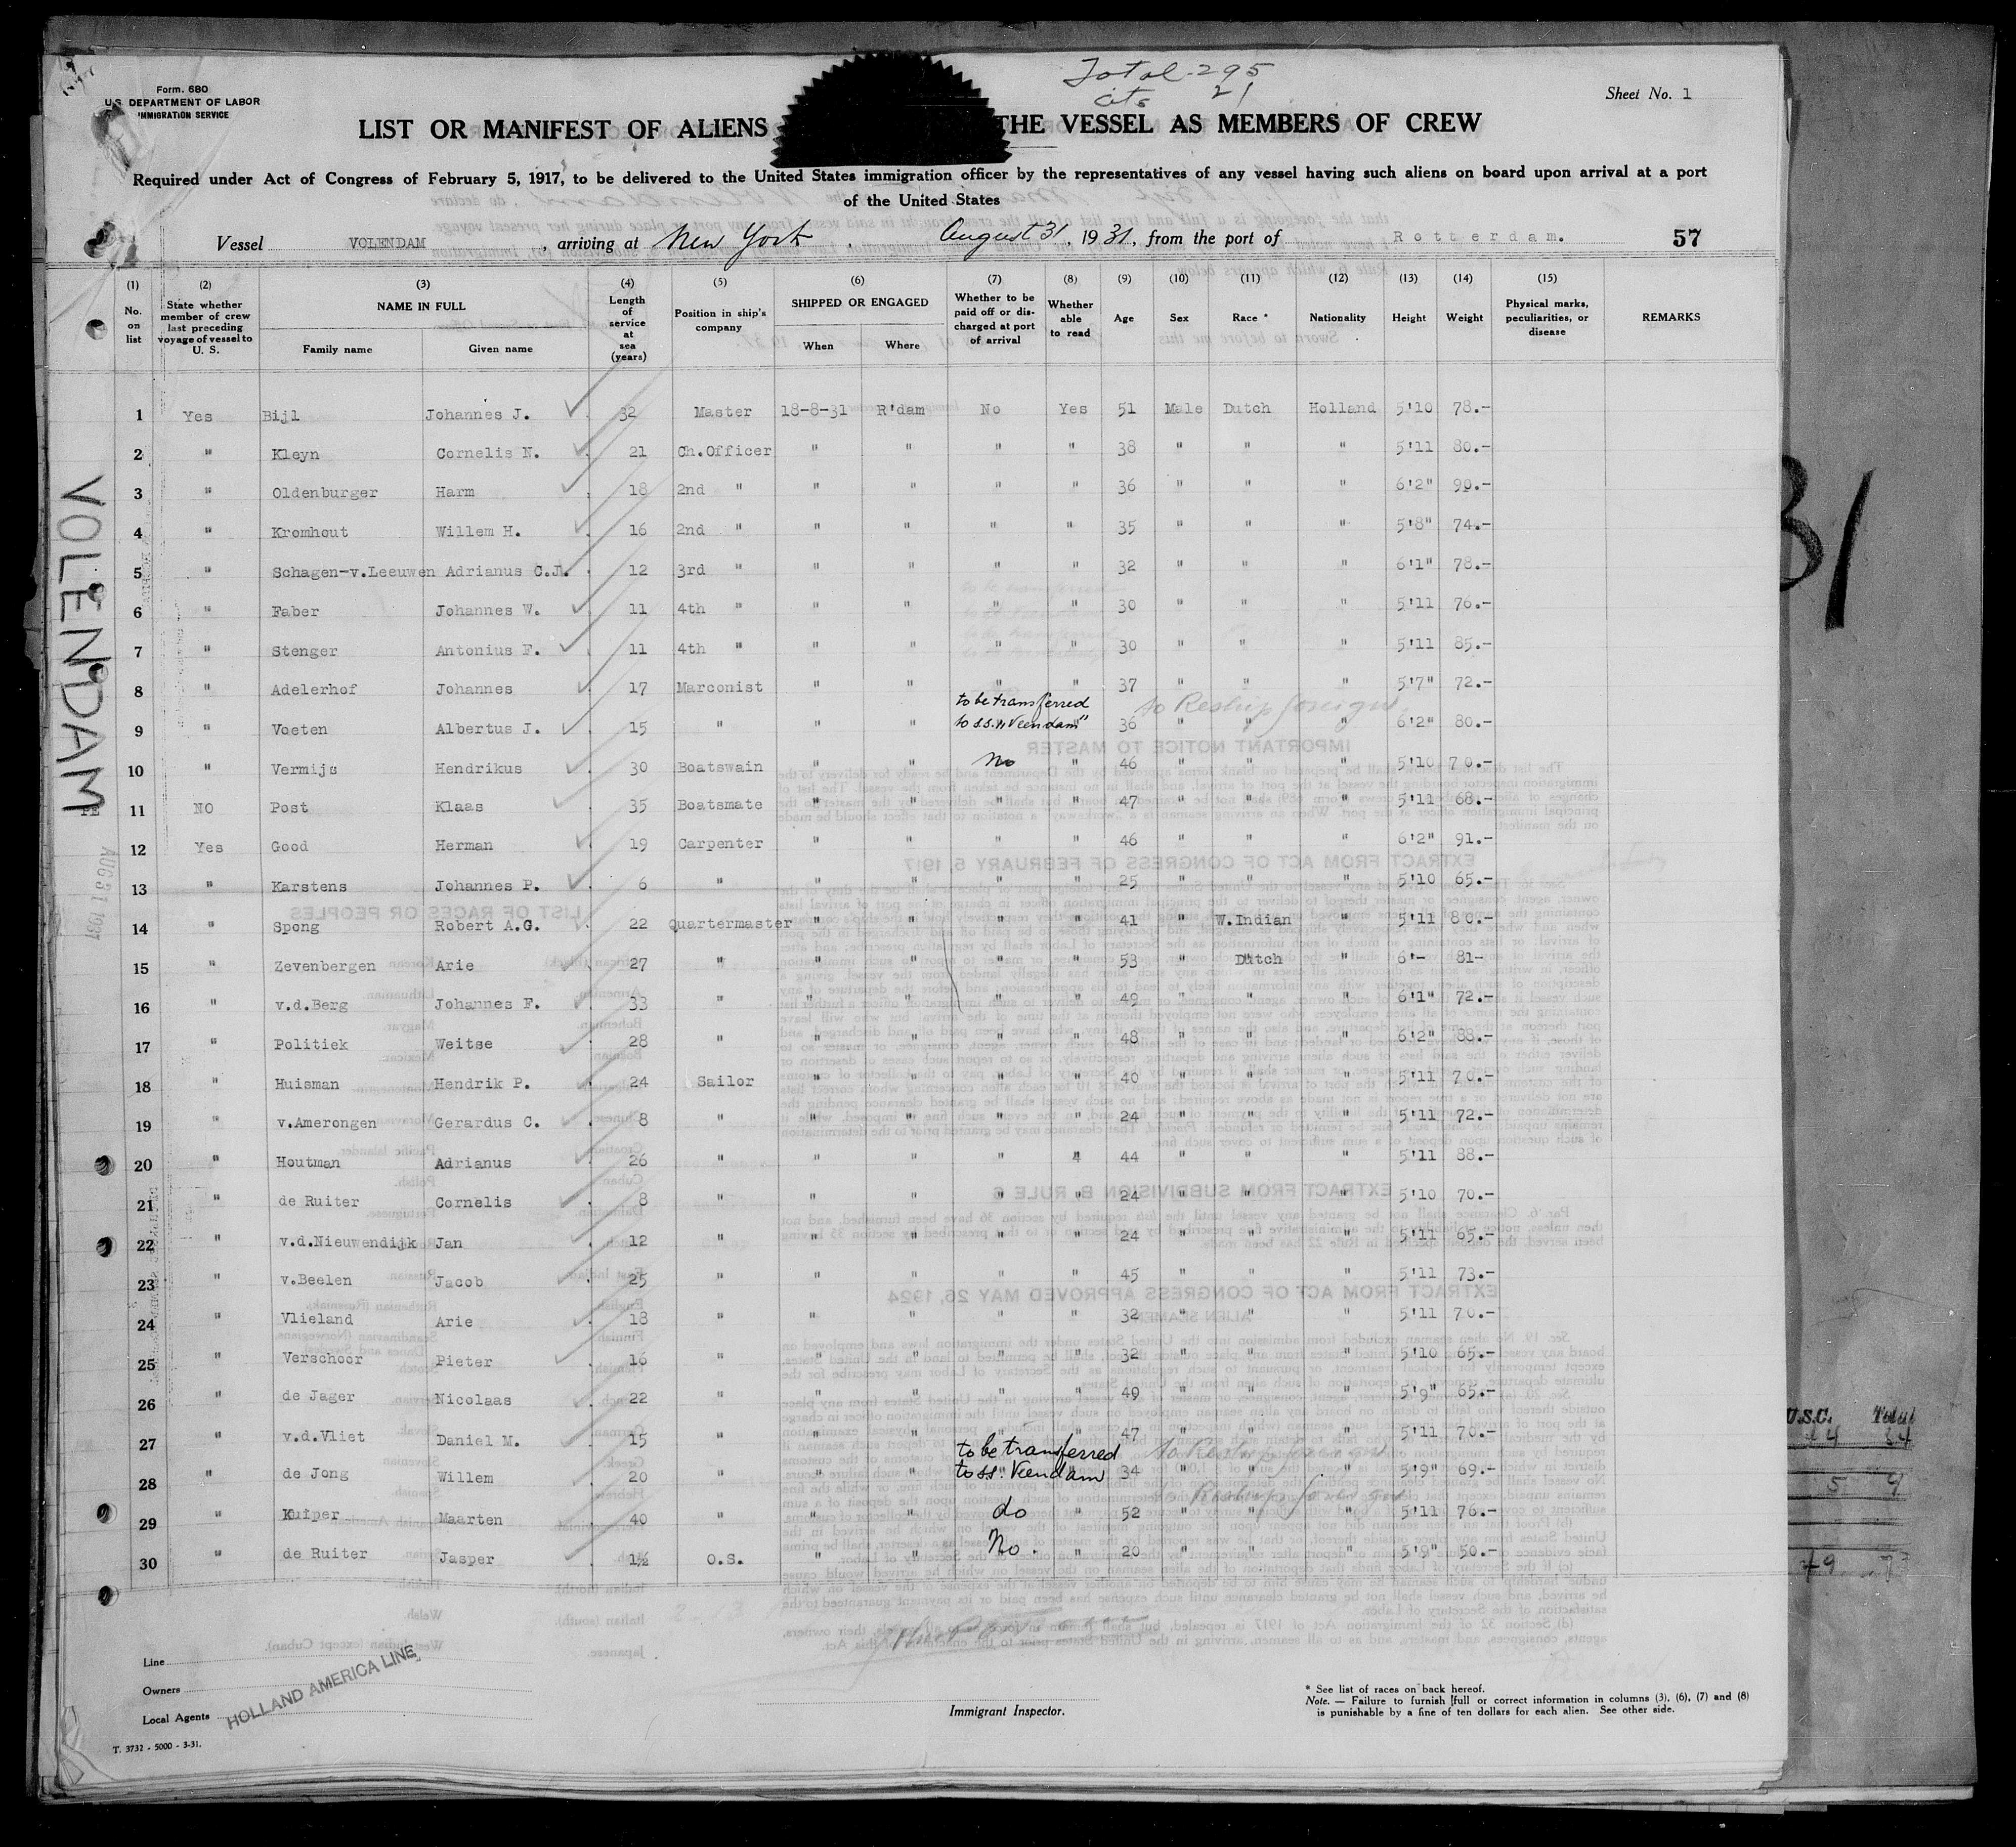 Total-295
cits 21
Form. 680
U.S. DEPARTMENT OF LABOR
IMMIGRATION SERVICE
Sheet No. 1
LIST OR MANIFEST OF ALIENS THE VESSEL AS MEMBERS OF CREW
Required under Act of Congress of February 5, 1917, to be delivered to the United States immigration officer by the representatives of any vessel having such aliens on board upon arrival at a port
of the United States
Vessel VOLENDAM, arriving at New York, August 31, 1931, from the port of Rotterdam. 57
(1) No. on list (2) State whether member of crew last preceding voyage of vessel to U. S. (3) NAME IN FULL Family name Given name (4) Length of service at sea (years) (5) Position in ship's company (6) SHIPPED OR ENGAGED When Where (7) Whether to be paid off or discharged at port of arrival (8) Whether able to read (9) Age (10) Sex (11) Race * (12) Nationality (13) Height (14) Weight (15) Physical marks, peculiarities, or disease REMARKS
1 Yes Bijl Johannes J. 32 Master 18-8-31 R'dam No Yes 51 Male Dutch Holland 5'10 78.-
2 " Kleyn Cornelis N. 21 Ch.Officer " " " " 38 " " " 5'11 80.-
3 " Oldenburger Harm 18 2nd " " " " " 36 " " " 6'2" 90.-
4 " Kromhout Willem H. 16 2nd " " " " " 35 " " " 5'8" 74.-
5 " Schagen-v.Leeuwen Adrianus C.J. 12 3rd " " " " " 32 " " " 6'1" 78.-
6 " Faber Johannes W. 11 4th " " " " " 30 " " " 5'11 76.-
7 " Stenger Antonius F. 11 4th " " " " " 30 " " " 5'11 85.-
8 " Adelerhof Johannes 17 Marconist " " " " 37 " " " 5'7" 72.-
9 " Voeten Albertus J. 15 " " " to be transferred to s.s. "Veendam" " 36 " " " 6'2" 80.- to Reship foreign
10 " Vermijs Hendrikus 30 Boatswain " " No " 46 " " " 5'10 70.-
11 NO Post Klaas 35 Boatsmate " " " " 47 " " " 5'11 68.-
12 Yes Good Herman 19 Carpenter " " " " 46 " " " 6'2" 91.-
13 " Karstens Johannes P. 6 " " " " " 25 " " " 5'10 65.-
14 " Spong Robert A.G. 22 Quartermaster " " " " 41 " W.Indian " 5'11 80.-
15 " Zevenbergen Arie 27 " " " " " 53 " Dutch " 6'- 81-
16 " v.d.Berg Johannes F. 33 " " " " " 49 " " " 6'1" 72.-
17 " Politiek Weitse 28 " " " " " 48 " " " 6'2" 88.-
18 " Huisman Hendrik P. 24 Sailor " " " " 40 " " " 5'11 70.-
19 " v.Amerongen Gerardus C. 8 " " " " " 24 " " " 5'11 72.-
20 " Houtman Adrianus 26 " " " " " 44 " " " 5'11 88.-
21 " de Ruiter Cornelis 8 " " " " " 24 " " " 5'10 70.-
22 " v.d.Nieuwendijk Jan 12 " " " " " 24 " " " 5'11 65.-
23 " v.Beelen Jacob 25 " " " " " 45 " " " 5'11 73.-
24 " Vlieland Arie 18 " " " " " 32 " " " 5'11 70.-
25 " Verschoor Pieter 16 " " " " " 32 " " " 5'10 65.-
26 " de Jager Nicolaas 22 " " " " " 49 " " " 5'9" 65.-
27 " v.d.Vliet Daniel M. 15 " " " " " 47 " " " 5'11 70.-
28 " de Jong Willem 20 " " " to be transferred to ss. Veendam " 34 " " " 5'9" 69.- to Reship foreign
29 " Kuiper Maarten 40 " " " do " 52 " " " 5'11 76.- to Reship foreign
30 " de Ruiter Jasper 1½ O.S. " " No. " 20 " " " 5'9" 50.-
VOLENDAM
AUG 31 1931
Line
Owners
Local Agents
HOLLAND AMERICA LINE
Immigrant Inspector.
* See list of races on back hereof.
Note. — Failure to furnish full or correct information in columns (3), (6), (7) and (8)
is punishable by a fine of ten dollars for each alien. See other side.
T. 3732 - 5000 - 3-31.
31
U.S.C. Total
5 9